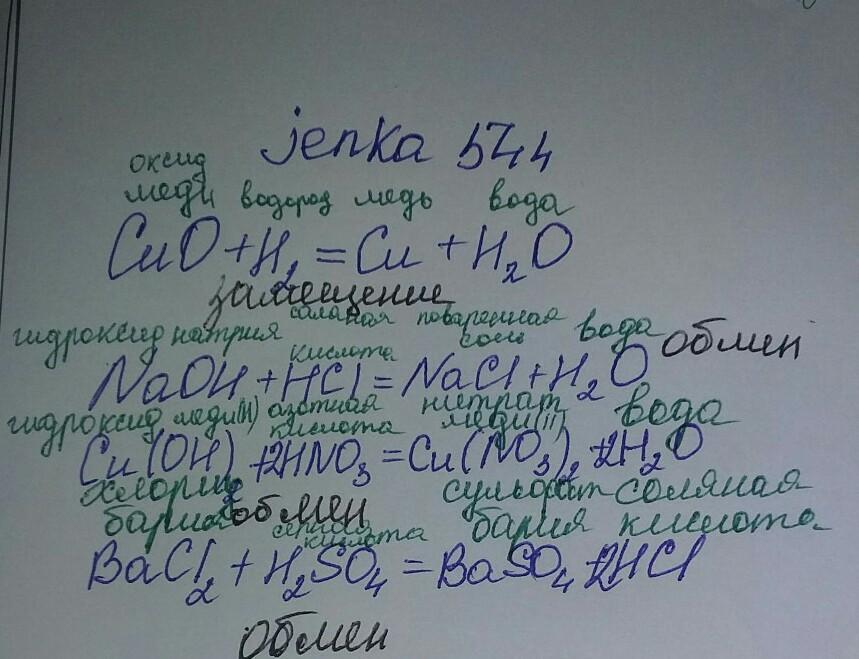 jenka 544
оксид
меди водород медь вода
CuO + H₂ = Cu + H₂O
замещение
гидроксид натрия соляная поваренная вода обмен
кислота соль
NaOH + HCl = NaCl + H₂O
гидроксид меди(II) азотная нитрат вода
кислота меди(II)
Cu(OH)₂ + 2HNO₃ = Cu(NO₃)₂ + 2H₂O
хлорид сульфат соляная
бария обмен серная кислота бария кислота
BaCl₂ + H₂SO₄ = BaSO₄ + 2HCl
обмен